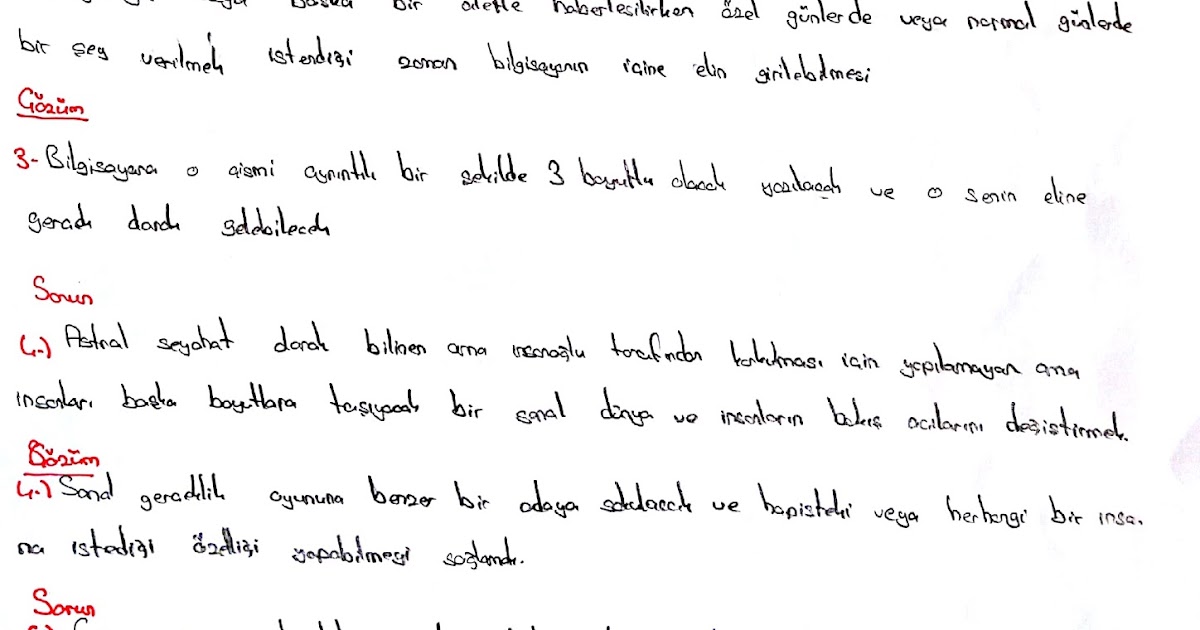 bir adetle haberleşilirken özel günlerde veya normal günlerde
bir şey verilmek istendiği zaman bilgisayarın içine elin girilebilmesi
Çözüm
3- Bilgisayara o cismi ayrıntılı bir şekilde 3 boyutlu olarak yazılacak ve o senin eline
gerçek olarak gelebilecek
Sorun
4-) Astral seyahat olarak bilinen ama insanoğlu tarafından korkulması için yapılamayan ama
insanları başka boyutlara taşıyacak bir sanal dünya ve insanların bakış açılarını değiştirmek.
Çözüm
4-) Sanal gerçeklik oyununa benzer bir odaya sokulacak ve hapisteki veya herhangi bir insa.
na istediği özelliği yapabilmesi sağlandı.
Sorun